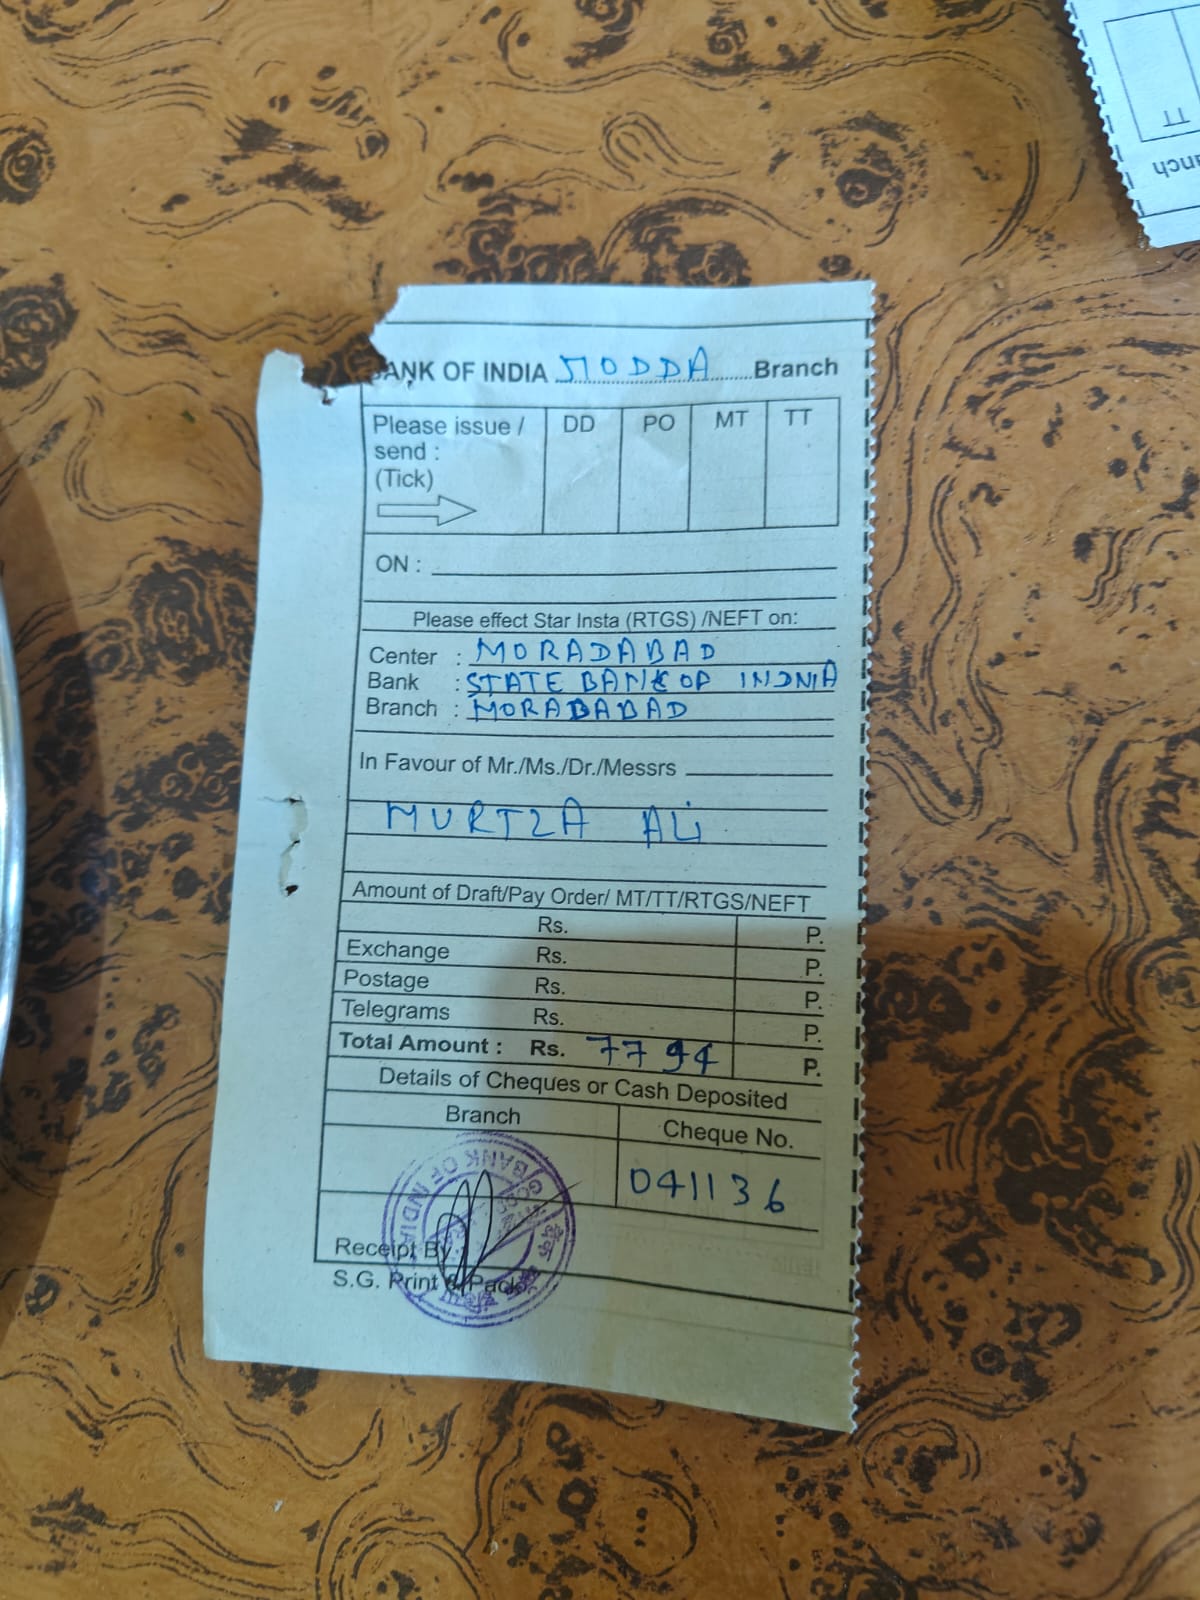 BANK OF INDIA MODDA Branch
Please issue / DD PO MT TT
send :
(Tick)
ON :
Please effect Star Insta (RTGS) /NEFT on:
Center : MORADABAD
Bank : STATE BANK OF INDNIA
Branch : MORABABAD
In Favour of Mr./Ms./Dr./Messrs
MURTZA ALi
Amount of Draft/Pay Order/ MT/TT/RTGS/NEFT
Rs. P.
Exchange Rs. P.
Postage Rs. P.
Telegrams Rs. P.
Total Amount : Rs. 7794 P.
Details of Cheques or Cash Deposited
Branch Cheque No.
041136
BANK OF INDIA
Receipt By
S.G. Print & Pack
TT
anch